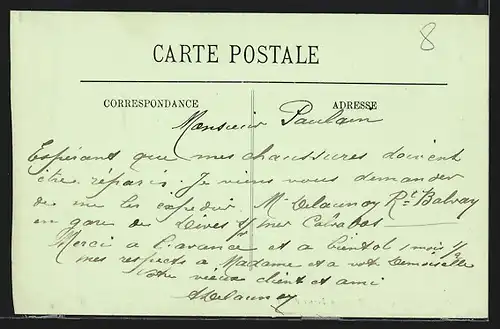 8
CARTE POSTALE
CORRESPONDANCE
ADRESSE
Monsieur Paulain
Espérant que mes chaussures doivent
être réparés. Je viens vous demander
de me les expedier. Mr Delaunay Rt Balvay
en gare de Dives s/ mer Calvados
Merci a l'avance et a bientot 1 mois 1/2
mes respects a Madame et a votr Demoiselle
votre vieux client et ami
ADelaunay